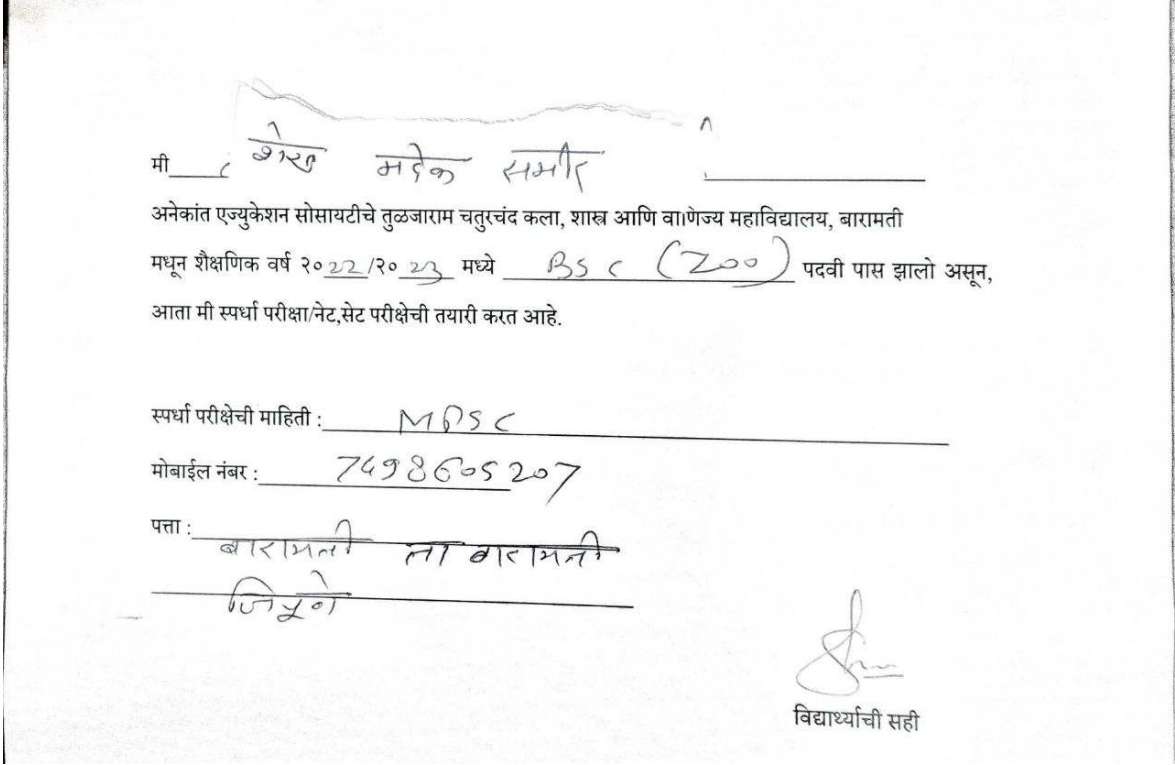 मी शेख मदेक समीर
अनेकांत एज्युकेशन सोसायटीचे तुळजाराम चतुरचंद कला, शास्त्र आणि वाणिज्य महाविद्यालय, बारामती
मधून शैक्षणिक वर्ष २०22/२०23 मध्ये BSC (Zoo) पदवी पास झालो असून,
आता मी स्पर्धा परीक्षा/नेट,सेट परीक्षेची तयारी करत आहे.
स्पर्धा परीक्षेची माहिती : MPSC
मोबाईल नंबर : 7498605207
पत्ता : बारामती ता बारामती
जि पुणे
विद्यार्थ्याची सही